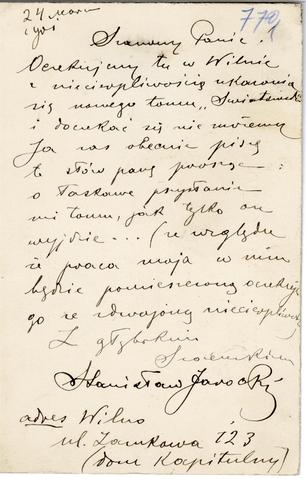 24 Marca
1901
770
Szanowny Panie!
Oczekujemy tu w Wilnie
z niecierpliwością ukazania
się nowego tomu „Swiatełka"
i doczekać się nie możemy
Ja zaś obecnie piszę
te słów parę prosząc
o łaskawe przysłanie
mi tomu, jak tylko on
wyjdzie... (ze względu
że praca moja w nim
będzie pomieszczoną oczekuję
go ze zdwojoną niecierpliwością
Z głębokim
Szacunkiem
Stanisław Jarocki
adres Wilno
ul. Zamkowa 123
(dom Kapitulny)